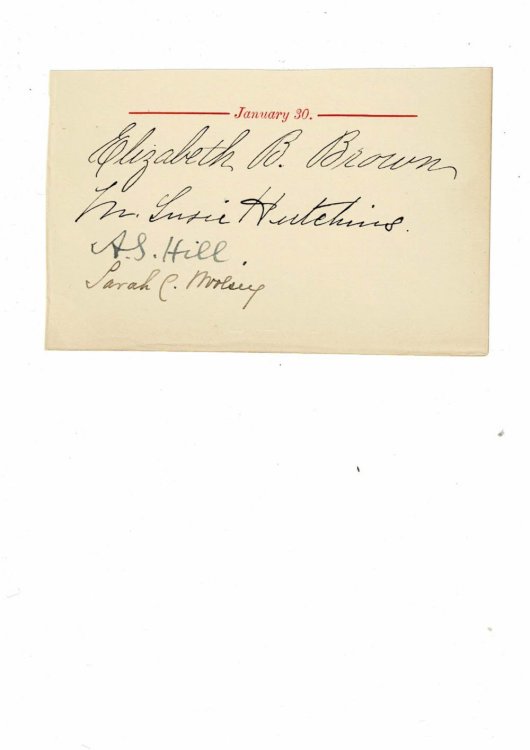 January 30.
Elizabeth B. Brown
M. Susie Hutchins.
A.S. Hill.
Sarah C. Woolsey